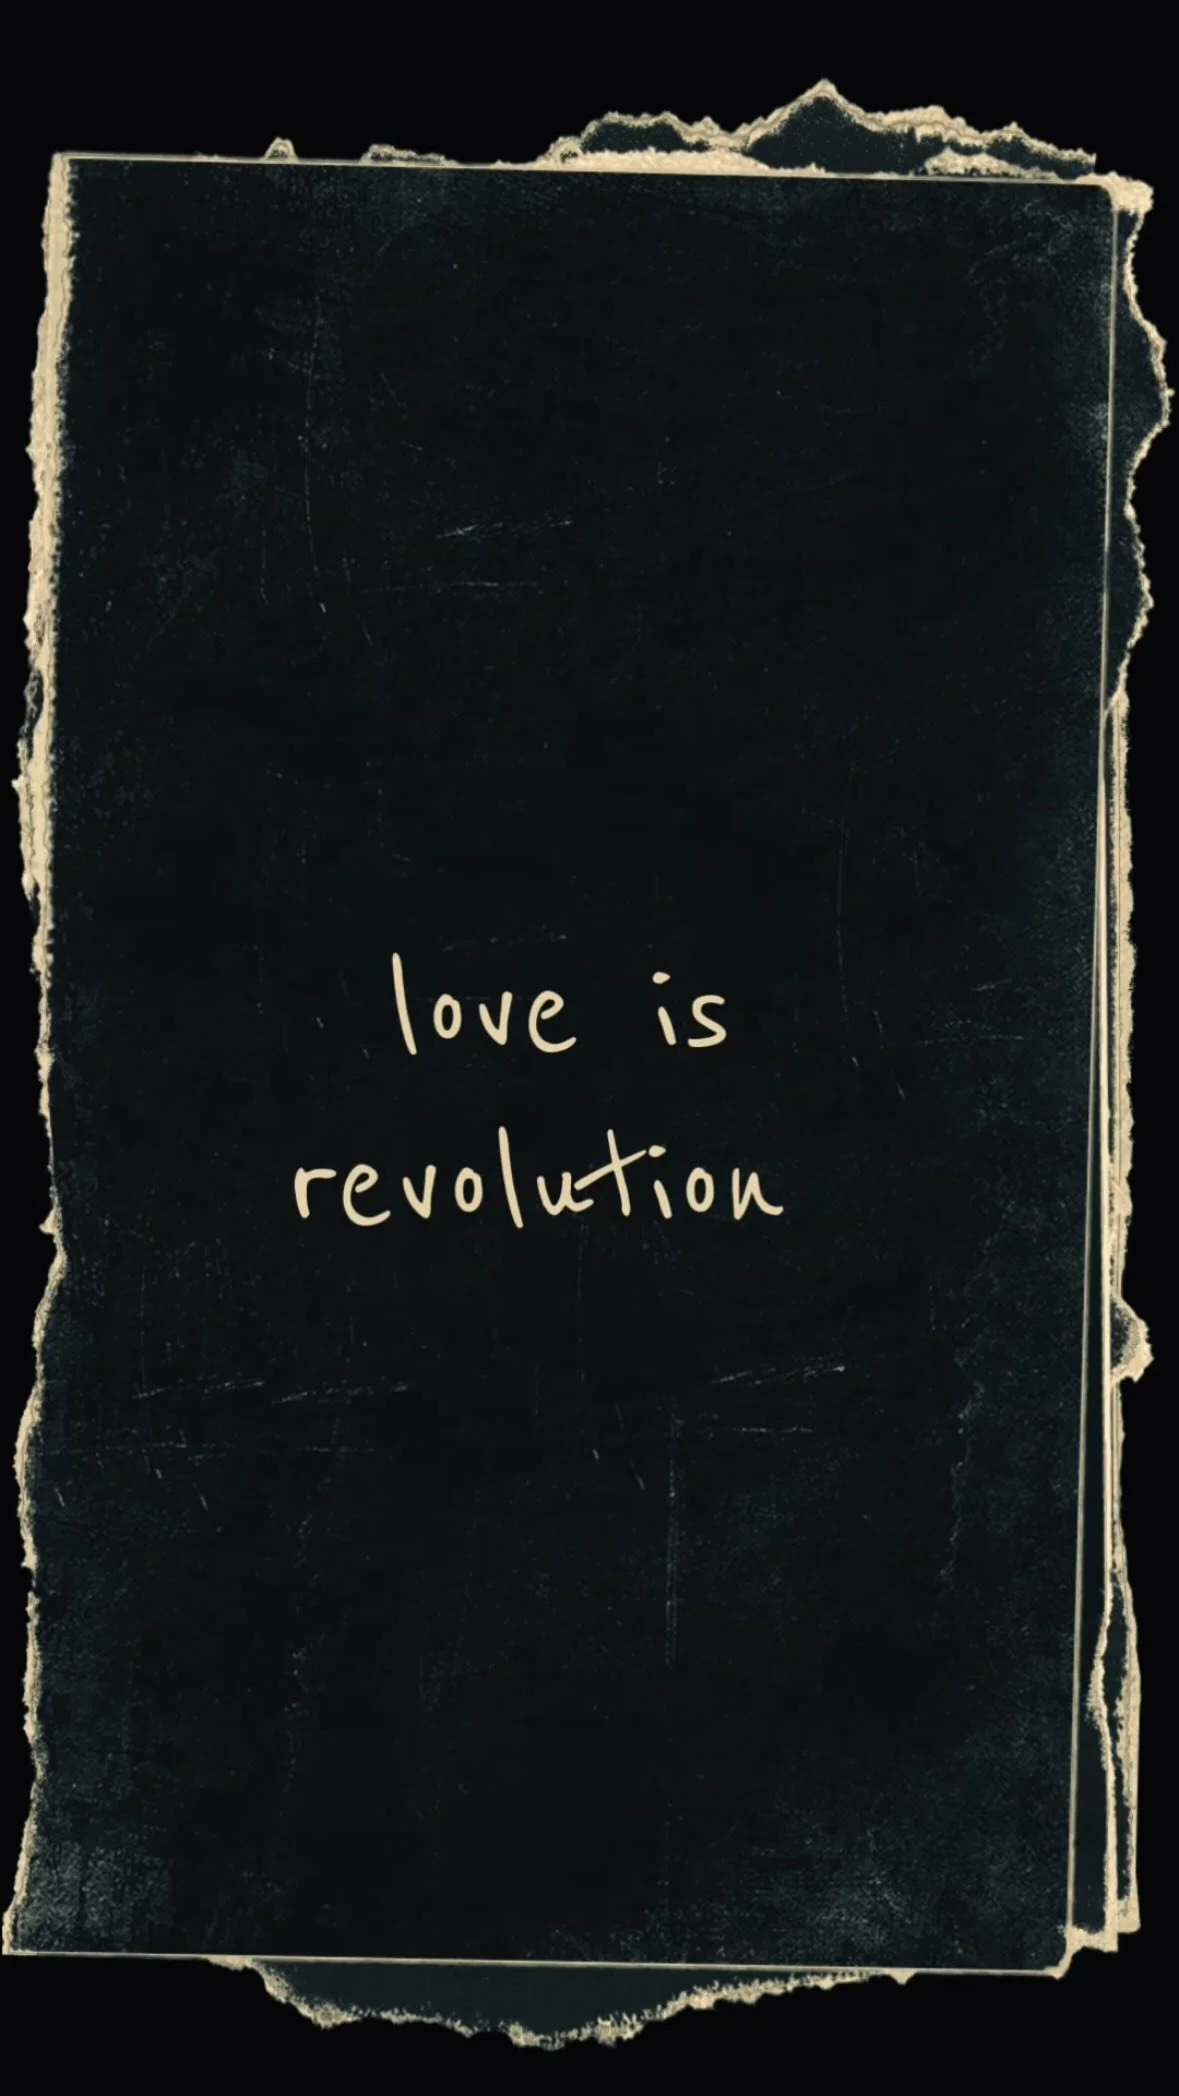 love is
revolution